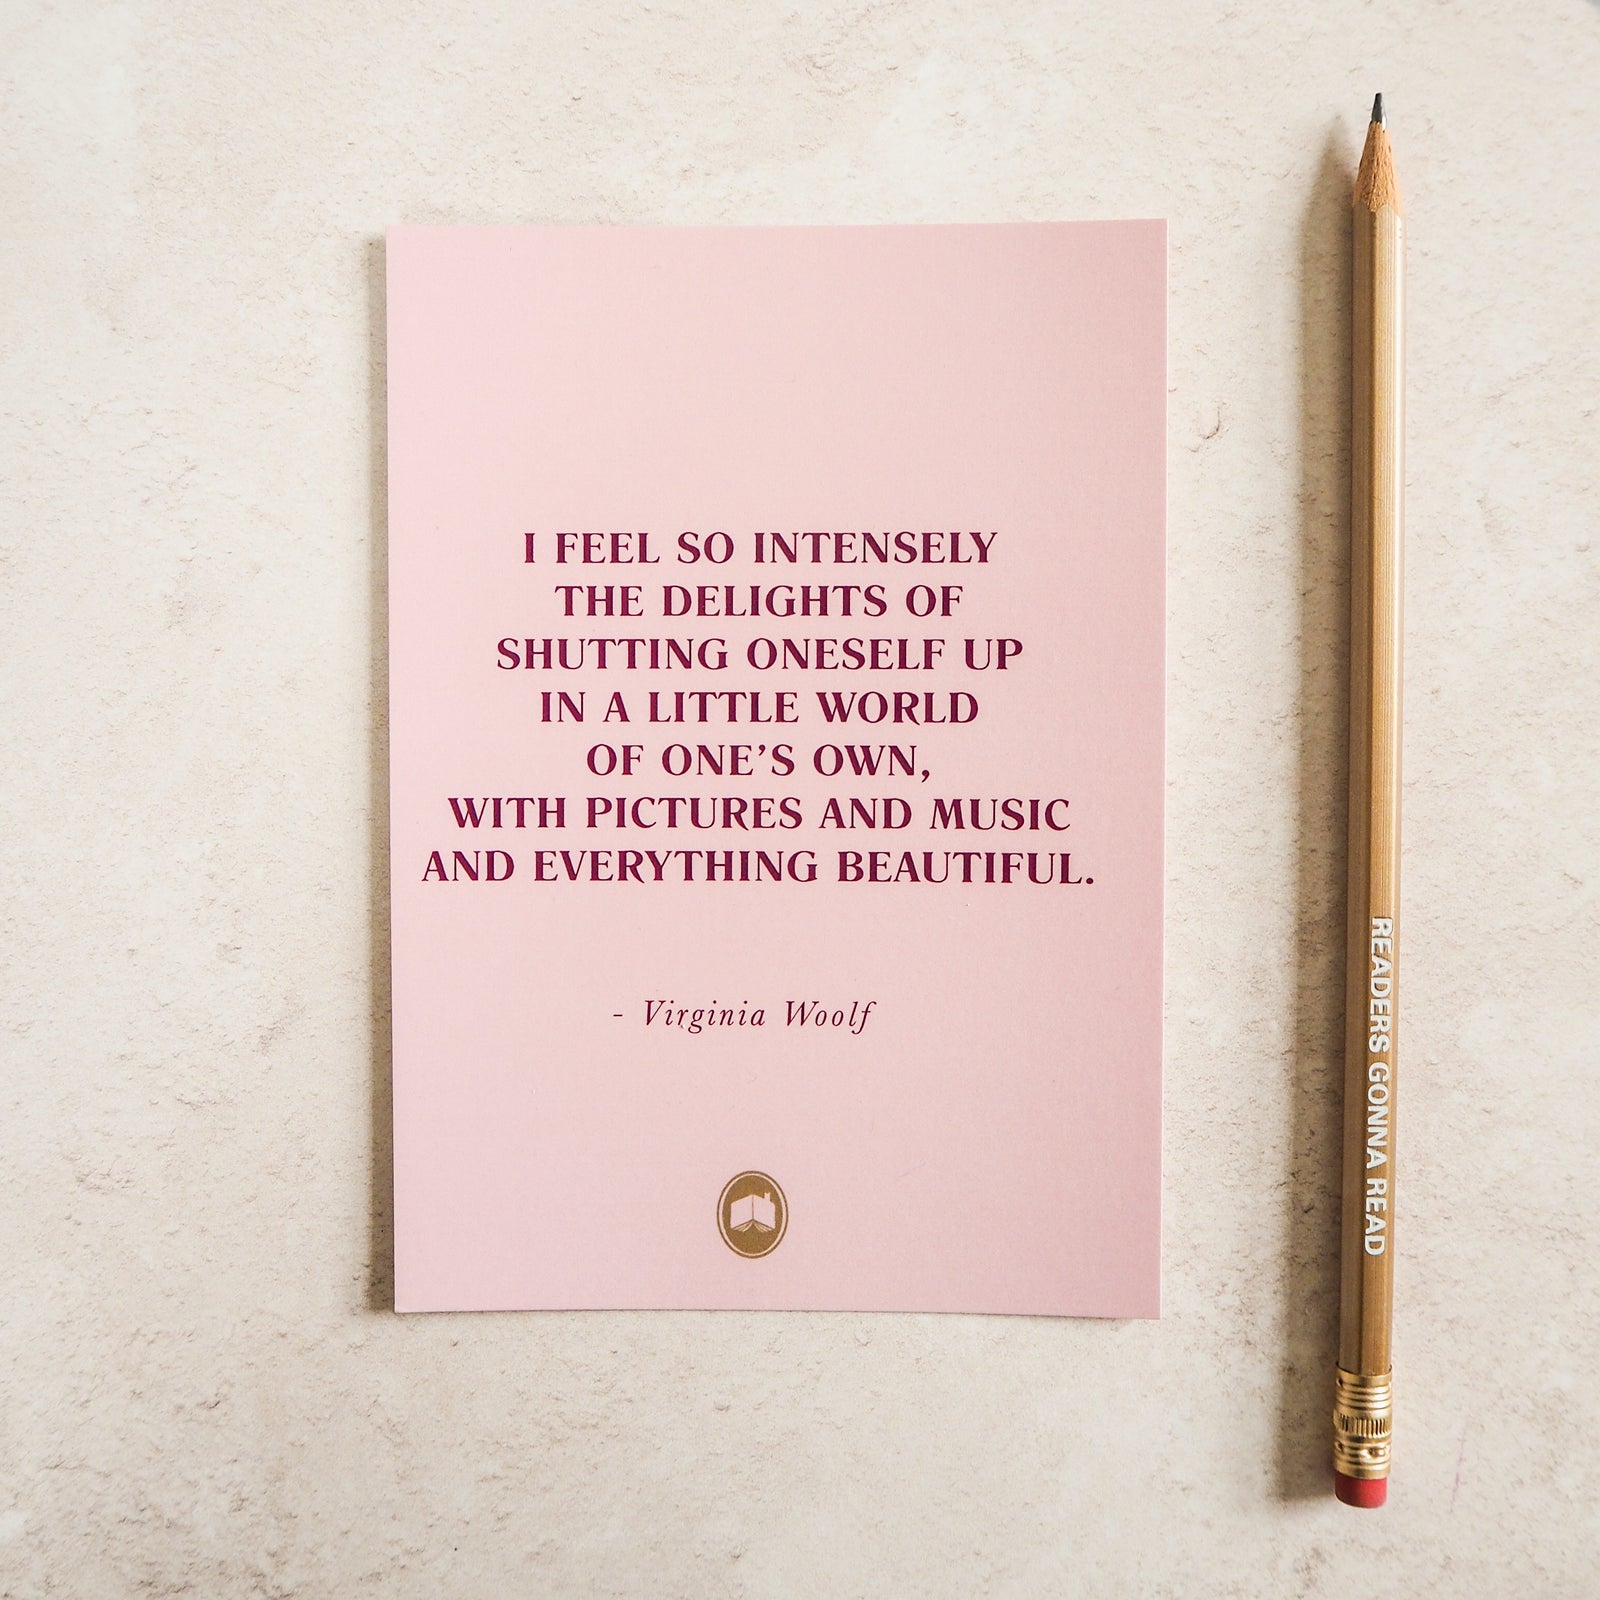 I FEEL SO INTENSELY
THE DELIGHTS OF
SHUTTING ONESELF UP
IN A LITTLE WORLD
OF ONE’S OWN,
WITH PICTURES AND MUSIC
AND EVERYTHING BEAUTIFUL.
- Virginia Woolf
READERS GONNA READ